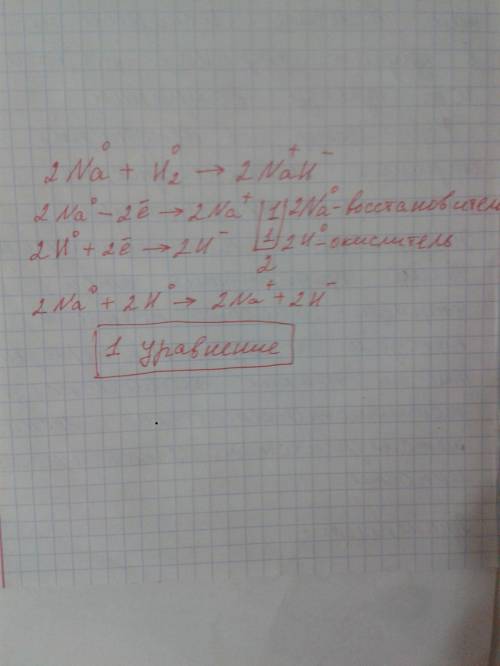 2Na⁰ + H₂⁰ → 2Na⁺H⁻
2Na⁰ - 2ē → 2Na⁺ | 1 | 2Na⁰-восстановитель
2H⁰ + 2ē → 2H⁻ | 1 | 2H⁰-окислитель
2
2Na⁰ + 2H⁰ → 2Na⁺ + 2H⁻
1 уравнение